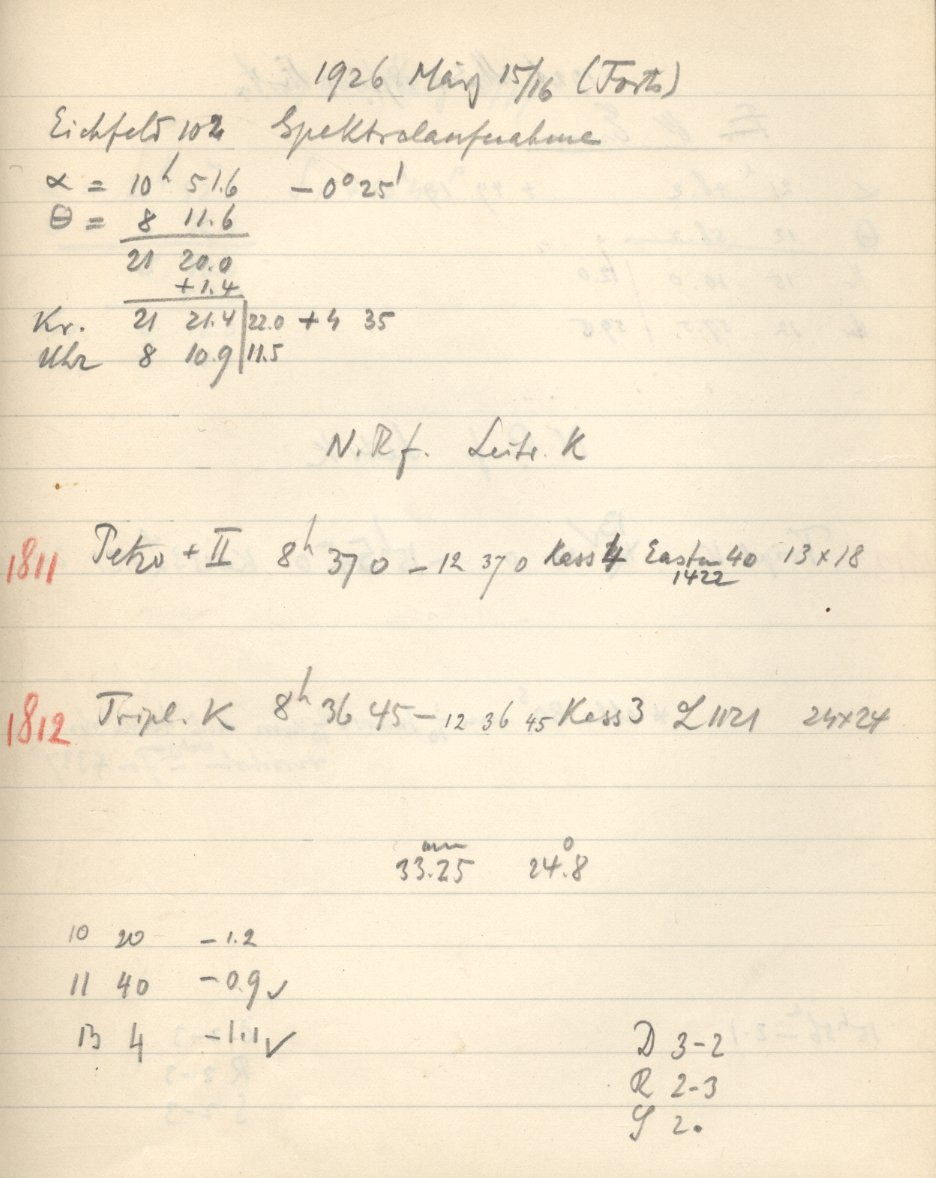 1926 März 15/16 (Forts)
Eichfeld 102 Spektralaufnahme
α = 10h 51.6 – 0° 25'
θ = 8 11.6
21 20.0
+1.4
Kr. 21 21.4 | 22.0 + 4 35
Uhr 8 10.9 | 11.5
N.Rf. Leitr. K
1811 Petzv + II 8h 37 0 – 12 37 0 Kass 4 Eastm 40 13×18
1422
1812 Tripl. K 8h 36 45 – 12 36 45 Kass 3 L 1121 24×24
33.25 mm 24.8°
10 20 – 1.2
11 40 – 0.9 ✓
13 4 – 1.1 ✓
D 3-2
R 2-3
S 2.